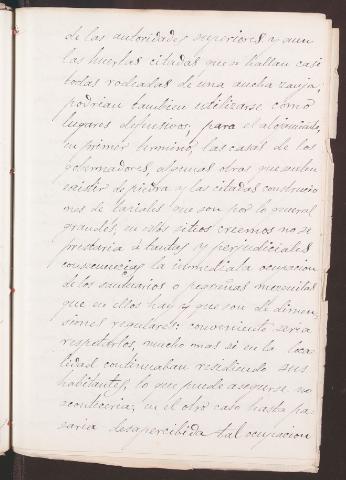 de las autoridades superiores y aun
las huertas citadas que se hallan casi
todas rodeadas de una ancha zanja,
podrian tambien utilizarse como
lugares defensivos; para el alojamiento,
en primer termino, las casas de los
gobernadores, algunas otras que suelen
existir de piedra y las citadas construccio
nes de tapiales que son por lo general
grandes, en estos sitios creemos no se
prestaria á tantas y perjudiciales
consecuencias la inmediata ocupacion
de los santuarios o pequeñas mezquitas
que en ellos hay y que son de dimen-
siones regulares; conveniente seria
respetarlos, mucho mas si en la loca
lidad continuaban residiendo sus
habitantes, lo que puede asegurarse no
aconteceria; en el otro caso hasta pa-
saria desapercibida tal ocupacion